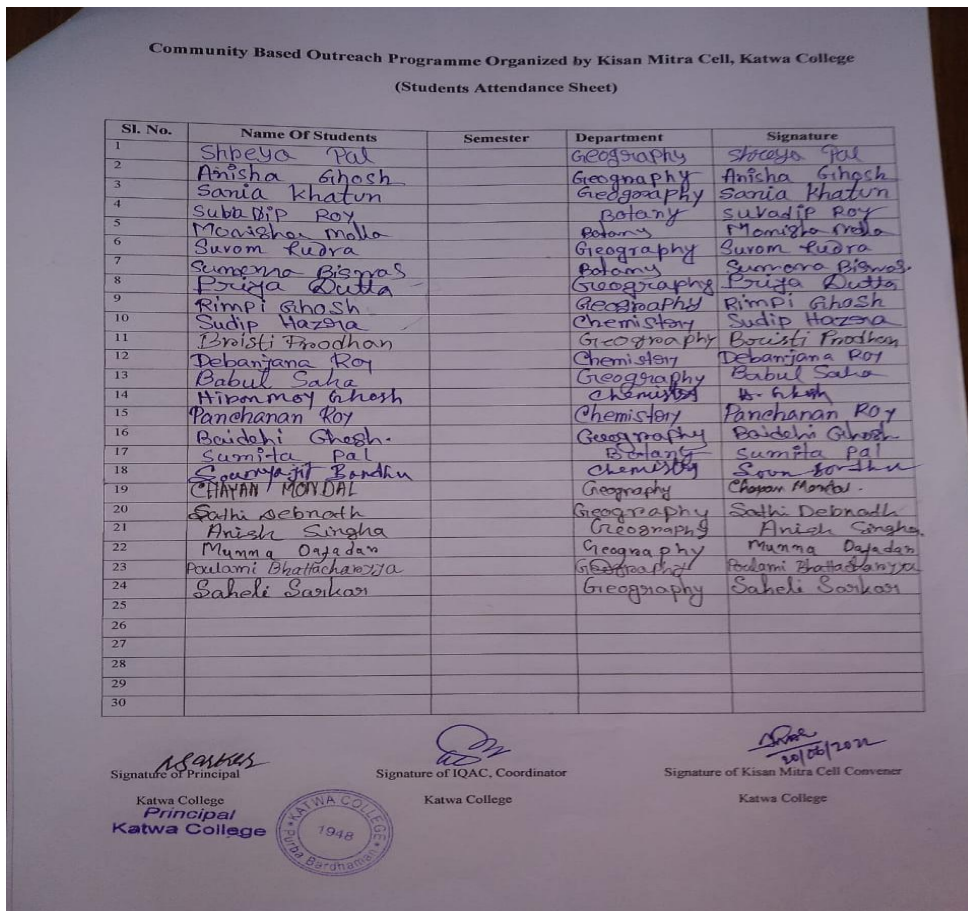 Community Based Outreach Programme Organized by Kisan Mitra Cell, Katwa College
(Students Attendance Sheet)
Sl. No. Name Of Students Semester Department Signature
1 Shreya Pal Geography Shreya Pal
2 Anisha Ghosh Geography Anisha Ghosh
3 Sania Khatun Geography Sania Khatun
4 Suba DIP Roy Botany Suvadip Roy
5 Monisha Molla Botany Monisha Molla
6 Suvom Rudra Geography Suvom Rudra
7 Biswas Botany Biswas.
8 Priya Dutta Geography Priya Dutta
9 Rimpi Ghosh Geography Rimpi Ghosh
10 Sudip Hazra Chemistry Sudip Hazra
11 Bristi Proodhan Geography Bristi Prodhan
12 Debanjana Roy Chemistry Debanjana Roy
13 Babul Saha Geography Babul Saha
14 Hironmoy Ghosh Chemistry H. Ghosh
15 Panchanan Roy Chemistry Panchanan Roy
16 Baidehi Ghosh. Geography Baidehi Ghosh
17 Sumita Pal Botany Sumita Pal
18 Soumyajit Bandhu Chemistry
19 CHAYAN MONDAL Geography Chayan Mondal.
20 Sathi Debnath Geography Sathi Debnath
21 Anish Singha Geography Anish Singha
22 Munna Dafadar Geography Munna Dafadar
23 Poulami Bhattacharyya Geography Poulami Bhattacharyya
24 Saheli Sarkar Geography Saheli Sarkar
25
26
27
28
29
30
20/06/2022
Signature of Principal Signature of IQAC, Coordinator Signature of Kisan Mitra Cell Convener
Katwa College Katwa College Katwa College
Principal
Katwa College
KATWA COLLEGE
1948
Purba Bardhaman